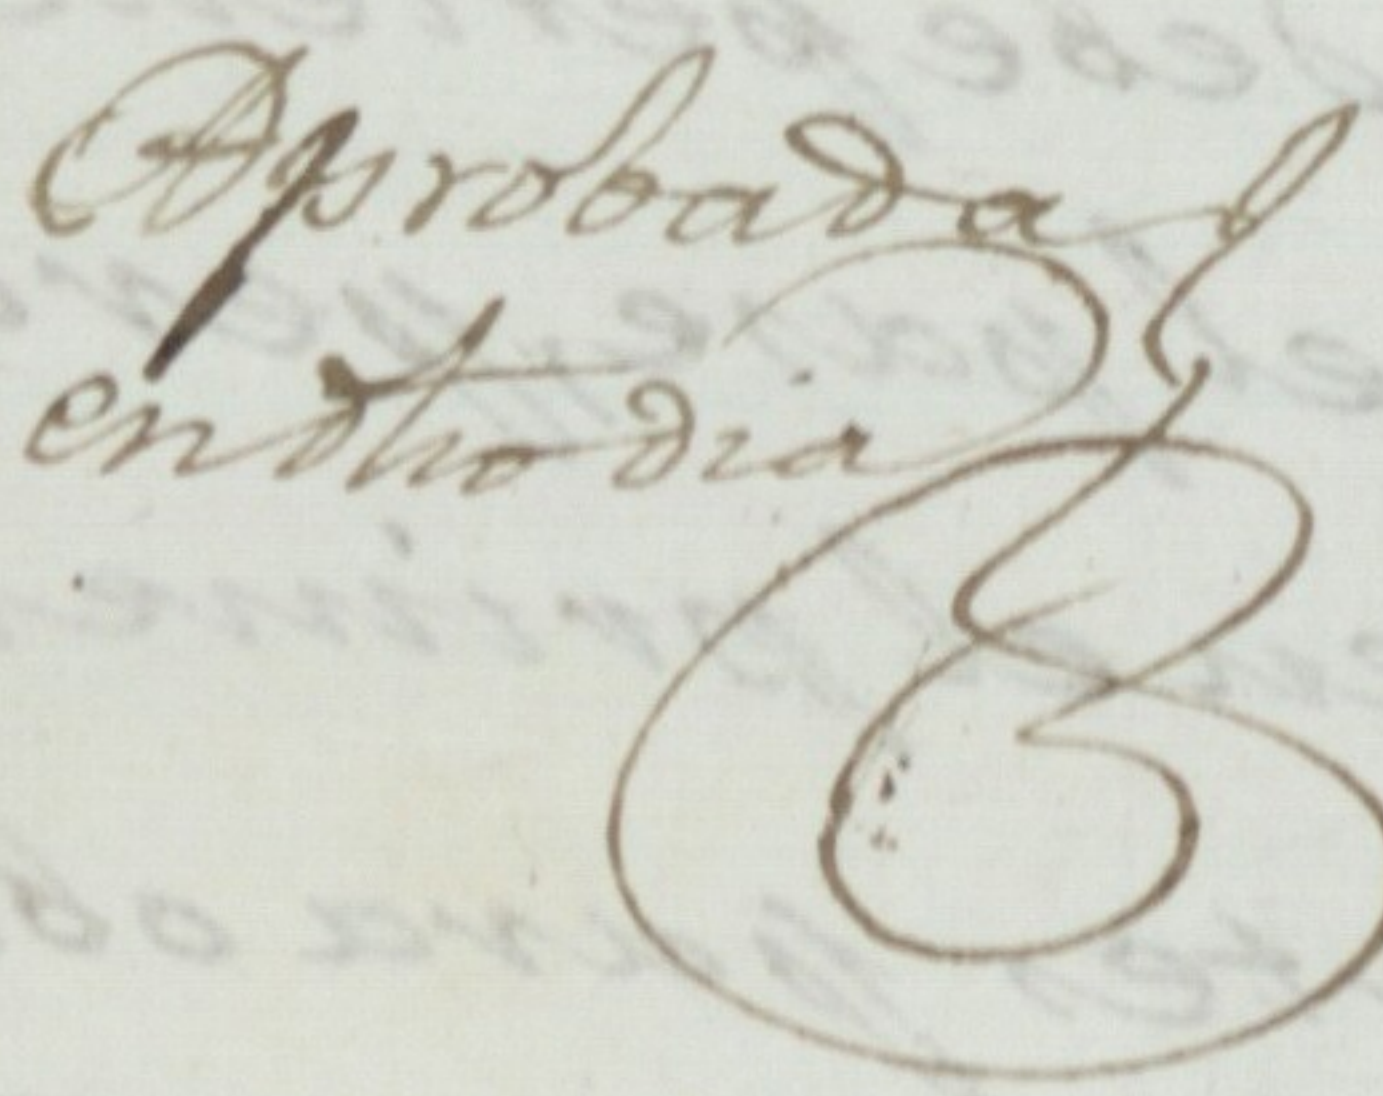 Aprobada
en dho dia